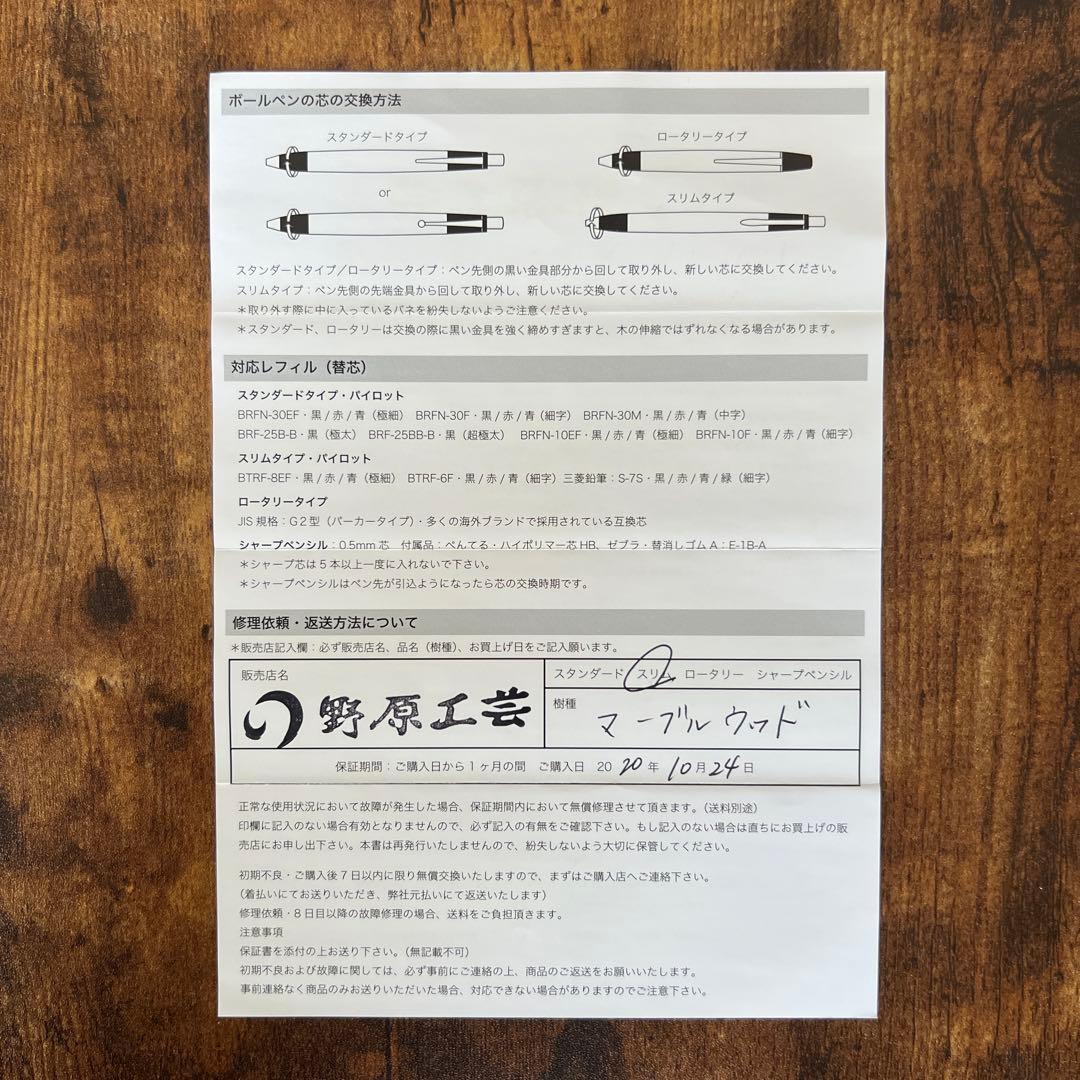 ボールペンの芯の交換方法
スタンダードタイプ
ロータリータイプ
or
スリムタイプ
スタンダードタイプ／ロータリータイプ：ペン先側の黒い金具部分から回して取り外し、新しい芯に交換してください。
スリムタイプ：ペン先側の先端金具から回して取り外し、新しい芯に交換してください。
＊取り外す際に中に入っているバネを紛失しないようご注意ください。
＊スタンダード、ロータリーは交換の際に黒い金具を強く締めすぎますと、木の伸縮ではずれなくなる場合があります。
対応レフィル（替芯）
スタンダードタイプ・パイロット
BRFN-30EF・黒 / 赤 / 青（極細） BRFN-30F・黒 / 赤 / 青（細字） BRFN-30M・黒 / 赤 / 青（中字）
BRF-25B-B・黒（極太） BRF-25BB-B・黒（超極太） BRFN-10EF・黒 / 赤 / 青（極細） BRFN-10F・黒 / 赤 / 青（細字）
スリムタイプ・パイロット
BTRF-8EF・黒 / 赤 / 青（極細） BTRF-6F・黒 / 赤 / 青（細字）三菱鉛筆：S-7S・黒 / 赤 / 青 / 緑（細字）
ロータリータイプ
JIS 規格：G２型（パーカータイプ）・多くの海外ブランドで採用されている互換芯
シャープペンシル：0.5mm 芯 付属品：ぺんてる・ハイポリマー芯 HB、ゼブラ・替消しゴム A：E-1B-A
＊シャープ芯は５本以上一度に入れないで下さい。
＊シャープペンシルはペン先が引込ようになったら芯の交換時期です。
修理依頼・返送方法について
＊販売店記入欄：必ず販売店名、品名（樹種）、お買上げ日をご記入願います。
販売店名
野原工芸
スタンダード スリム ロータリー シャープペンシル
樹種
マーブルウッド
保証期間：ご購入日から１ヶ月の間 ご購入日 20 20 年 10 月 24 日
正常な使用状況において故障が発生した場合、保証期間内において無償修理させて頂きます。（送料別途）
印欄に記入のない場合有効となりませんので、必ず記入の有無をご確認下さい。もし記入のない場合は直ちにお買上げの販
売店にお申し出下さい。本書は再発行いたしませんので、紛失しないよう大切に保管してください。
初期不良・ご購入後７日以内に限り無償交換いたしますので、まずはご購入店へご連絡下さい。
（着払いにてお送りいただき、弊社元払いにて返送いたします）
修理依頼・８日目以降の故障修理の場合、送料をご負担頂きます。
注意事項
保証書を添付の上お送り下さい。（無記載不可）
初期不良および故障に関しては、必ず事前にご連絡の上、商品のご返送をお願いいたします。
事前連絡なく商品のみお送りいただいた場合、対応できない場合がありますのでご注意下さい。